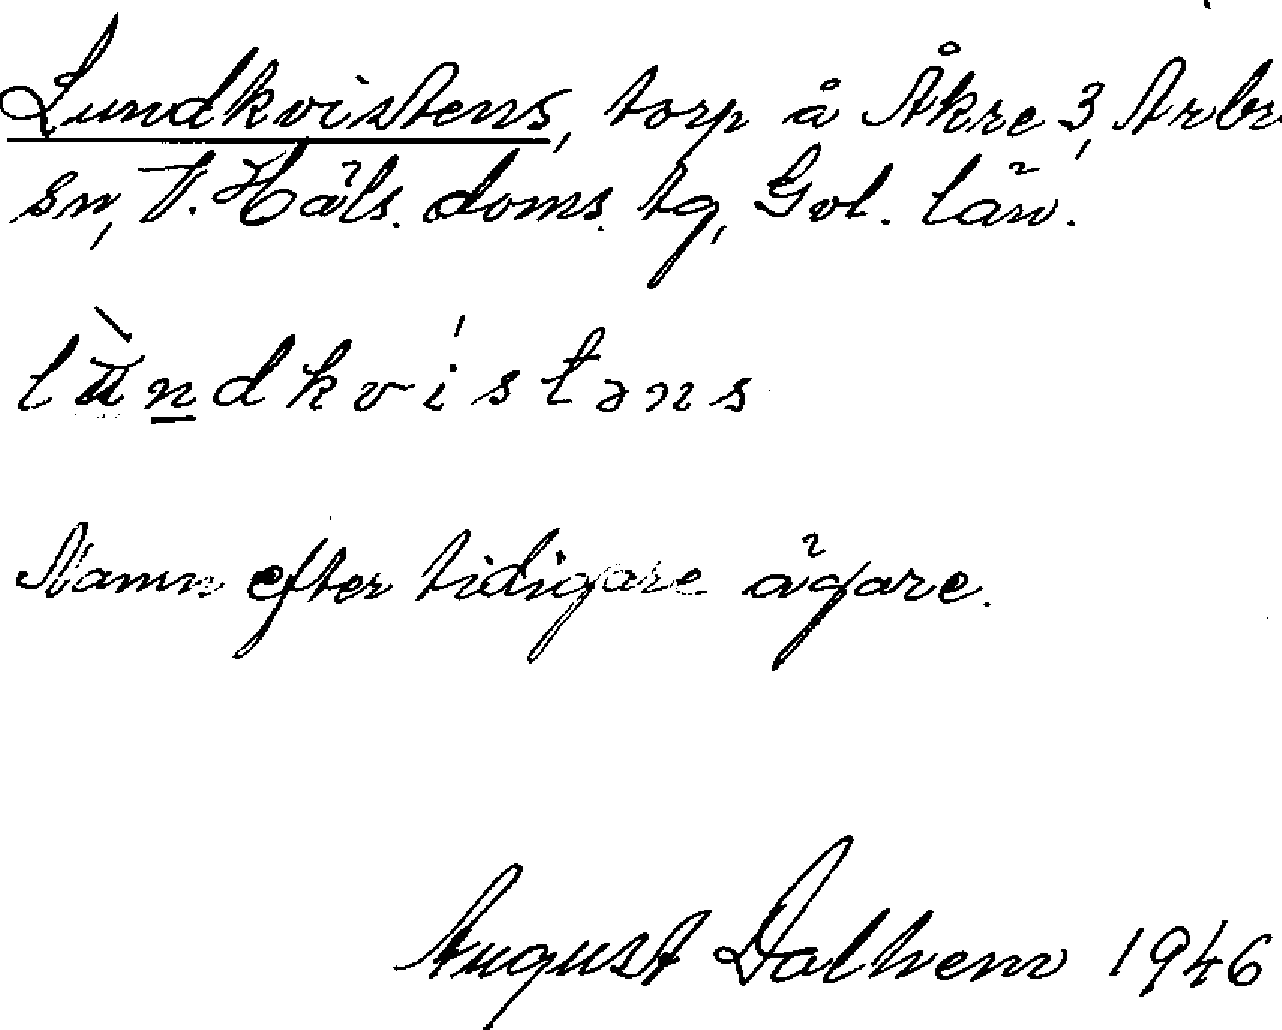 Lundkvistens, torp å Åkre 3, Arbr
sn, V. Häls. doms. tg, Gvl. län.
lùndkvístəns
Namn efter tidigare ägare.
August Dalhem 1946